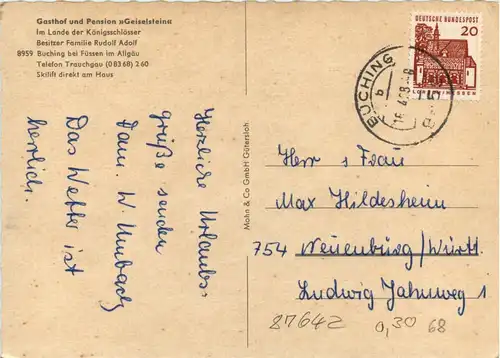 Gasthof und Pension »Geiselstein«
Im Lande der Königsschlösser
Besitzer Familie Rudolf Adolf
8959 Buching bei Füssen im Allgäu
Telefon Trauchgau (083 68) 2 60
Skilift direkt am Haus
Herzliche Urlaubs-
grüße senden
Fam. W. Umbach
Das Wetter ist
herrlich.
Mohn & Co GmbH Gütersloh
DEUTSCHE BUNDESPOST
20
BUCHING
b
Herr u Frau
Max Hildesheim
754 Neuenbürg/Württ.
Ludwig Jahnweg 1
87642
0,30
68